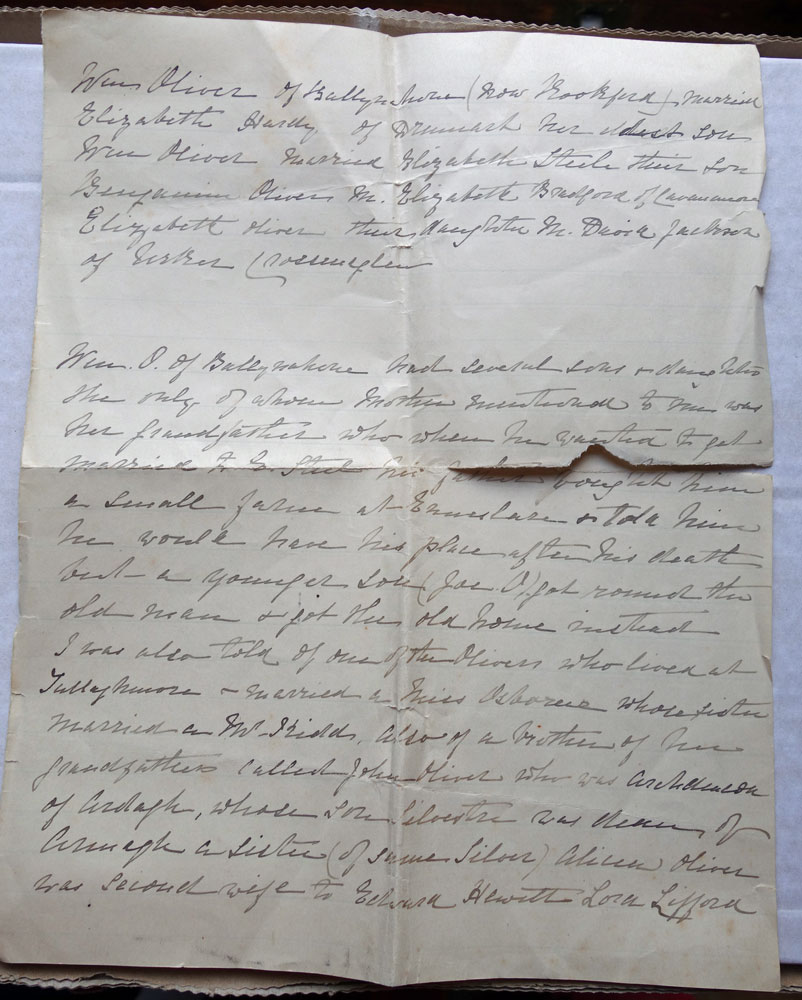 Wm Oliver of Ballynahone (now Hockford) married
Elizabeth Hardy of Drumart her eldest son
Wm Oliver married Elizabeth Steele their son
Benjamin Oliver M. Elizabeth Bradford of Cavanamore
Elizabeth Oliver their daughter M. David Jackson
of Urker (
Wm. O. of Ballynahone had several sons & daughters
the only of whom Mother mentioned to me was
her grandfather who when he wanted to get
married to E. Steel his father bought him
a small farm at & told him
he would have his place after his death
but a younger son (Joe O.) got round the
old man & got the old home instead
I was also told of one of the Olivers who lived at
Tullaghmore & married a Miss Osborne whose sister
married a Mr Kidd, also of a brother of her
grandfathers called John Oliver who was Archdeacon
of Ardagh, whose son Silvestre was dean of
Armagh a sister (of same Silver) Alicia Oliver
was second wife to Edward Hewitt Lord Lifford